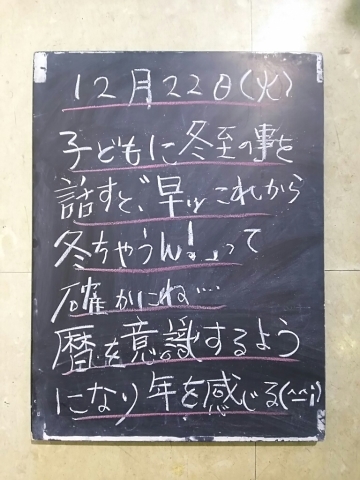 12月22日(火)
子どもに冬至の事を
話すと゛早ッこれから
冬ちゃうん!」って
確かにね…
暦を意識するよう
になり年を感じる(^^;)